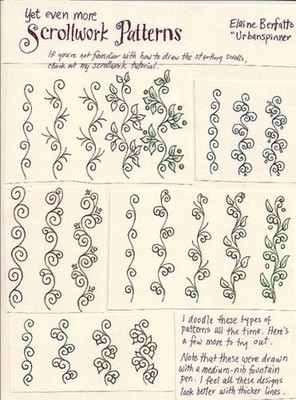 Yet even more
Scrollwork Patterns
Elaine Benfatto
"Urbanspinner
If you're not familiar with how to draw the starting scrolls,
check out my scrollwork tutorial.
I doodle these types of
patterns all the time. Here's
a few more to try out.
Note that these were drawn
with a medium-nib fountain
pen. I feel all these designs
look better with thicker lines.